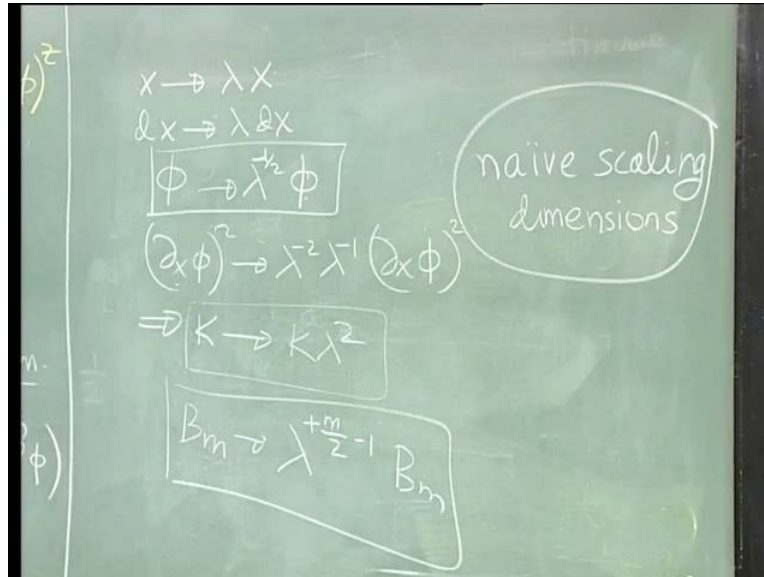 ϕ)²
x → λx
dx → λdx
ϕ → λ^{-1/2} ϕ
(∂ₓϕ)² → λ⁻² λ⁻¹ (∂ₓϕ)²
⇒ K → Kλ²
B_m → λ^{+m/2 -1} B_m
naïve scaling
dimensions
m.
ϕ)